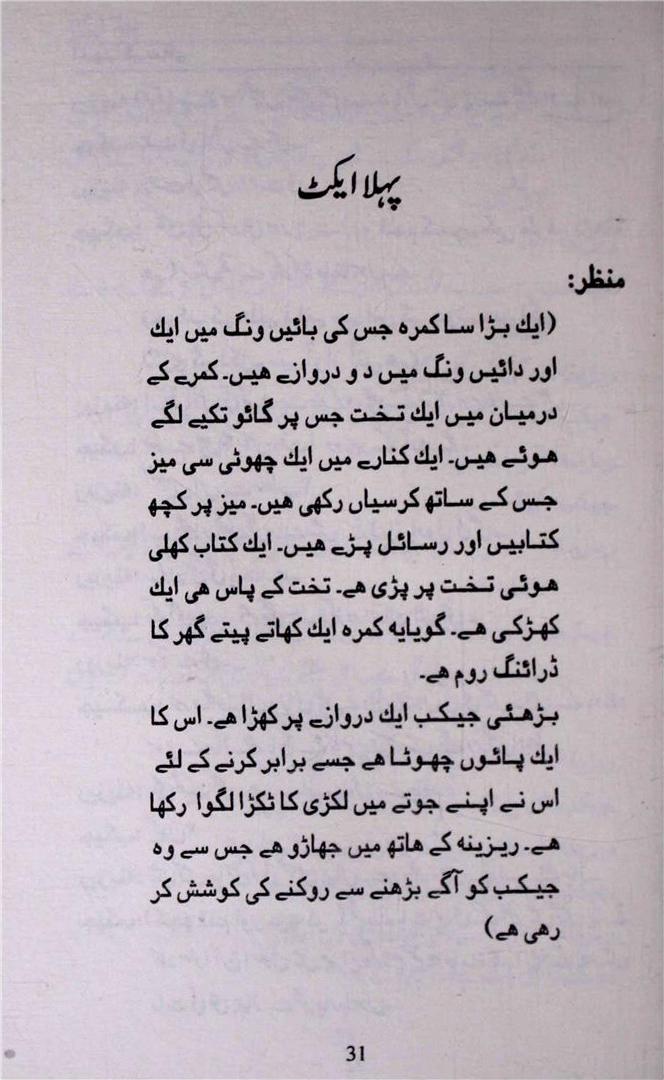 پہلا ایکٹ
منظر:
(ایك بڑا سا کمرہ جس کی بائیں ونگ میں ایك
اور دائیں ونگ میں دو دروازے هیں۔ کمرے کے
درمیان میں ایك تخت جس پر گائو تکیے لگے
هوئے هیں۔ ایك کنارے میں ایك چھوٹی سی میز
جس کے ساتھ کرسیاں رکھی هیں۔ میز پر کچھ
کتابیں اور رسائل پڑے هیں۔ ایك کتاب کھلی
هوئی تخت پر پڑی هے۔ تخت کے پاس هی ایك
کھڑکی هے۔ گویایه کمرہ ایك کھاتے پیتے گھر کا
ڈرائنگ روم هے۔
بڑھئی جیکب ایك دروازے پر کھڑا هے۔ اس کا
ایك پائوں چھوٹا هے جسے برابر کرنے کے لئے
اس نے اپنے جوتے میں لکڑی کا ٹکڑا لگوا رکھا
هے۔ ریزینه کے هاتھ میں جھاڑو هے جس سے وہ
جیکب کو آگے بڑھنے سے روکنے کی کوشش کر
رهی هے)
31